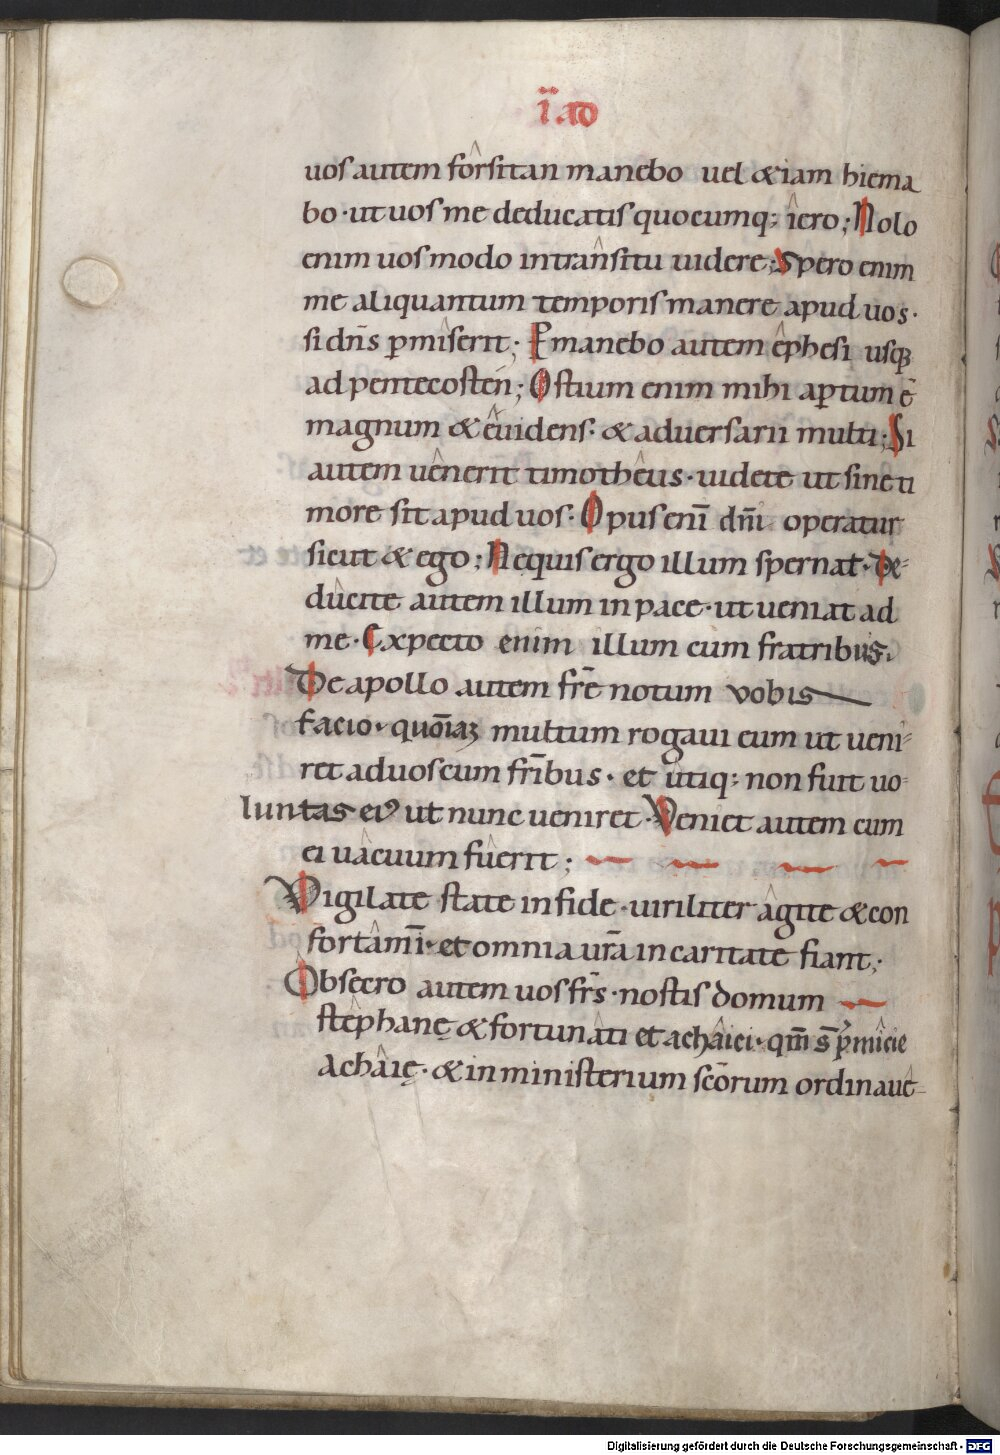 ī ad
uos autem forsitan manebo uel &iam hiema
bo · ut uos me deducatis quocumq; iero; Nolo
enim uos modo in transitu uidere; Spero enim
me aliquantum temporis manere apud uos ·
si dn̄s p̱miserit; P̱manebo autem ephesi usq;
ad pentecosten; Ostium enim mihi ap̱tum ē
magnum & euidens · & aduersarii multi; Si
autem uenerit timotheus · uidete ut sine ti
more sit apud uos · Opus enī dn̄i operatur
sicut & ego; Nequis ergo illum spernat · De-
ducite autem illum in pace · ut ueniat ad
me · Expecto enim illum cum fratribus.
De apollo autem frē notum vobis
facio · quōiaꝫ multum rogaui eum ut ueni-
ret ad uos cum frībus · et utiq; non fuit uo-
luntas eiꝰ ut nunc ueniret · Veniet autem cum
ei uacuum fuerit;
Vigilate state in fide · uiriliter agite & con
fortamī · et omnia ur̄a in caritate fiant;
Obsecro autem uos fr̄s · nostis domum
stephanę & fortunati et achaici · qm̄ s̄ p̱micie
Achaię · & in ministerium scōrum ordinauer̄
Digitalisierung gefördert durch die Deutsche Forschungsgemeinschaft - DFG